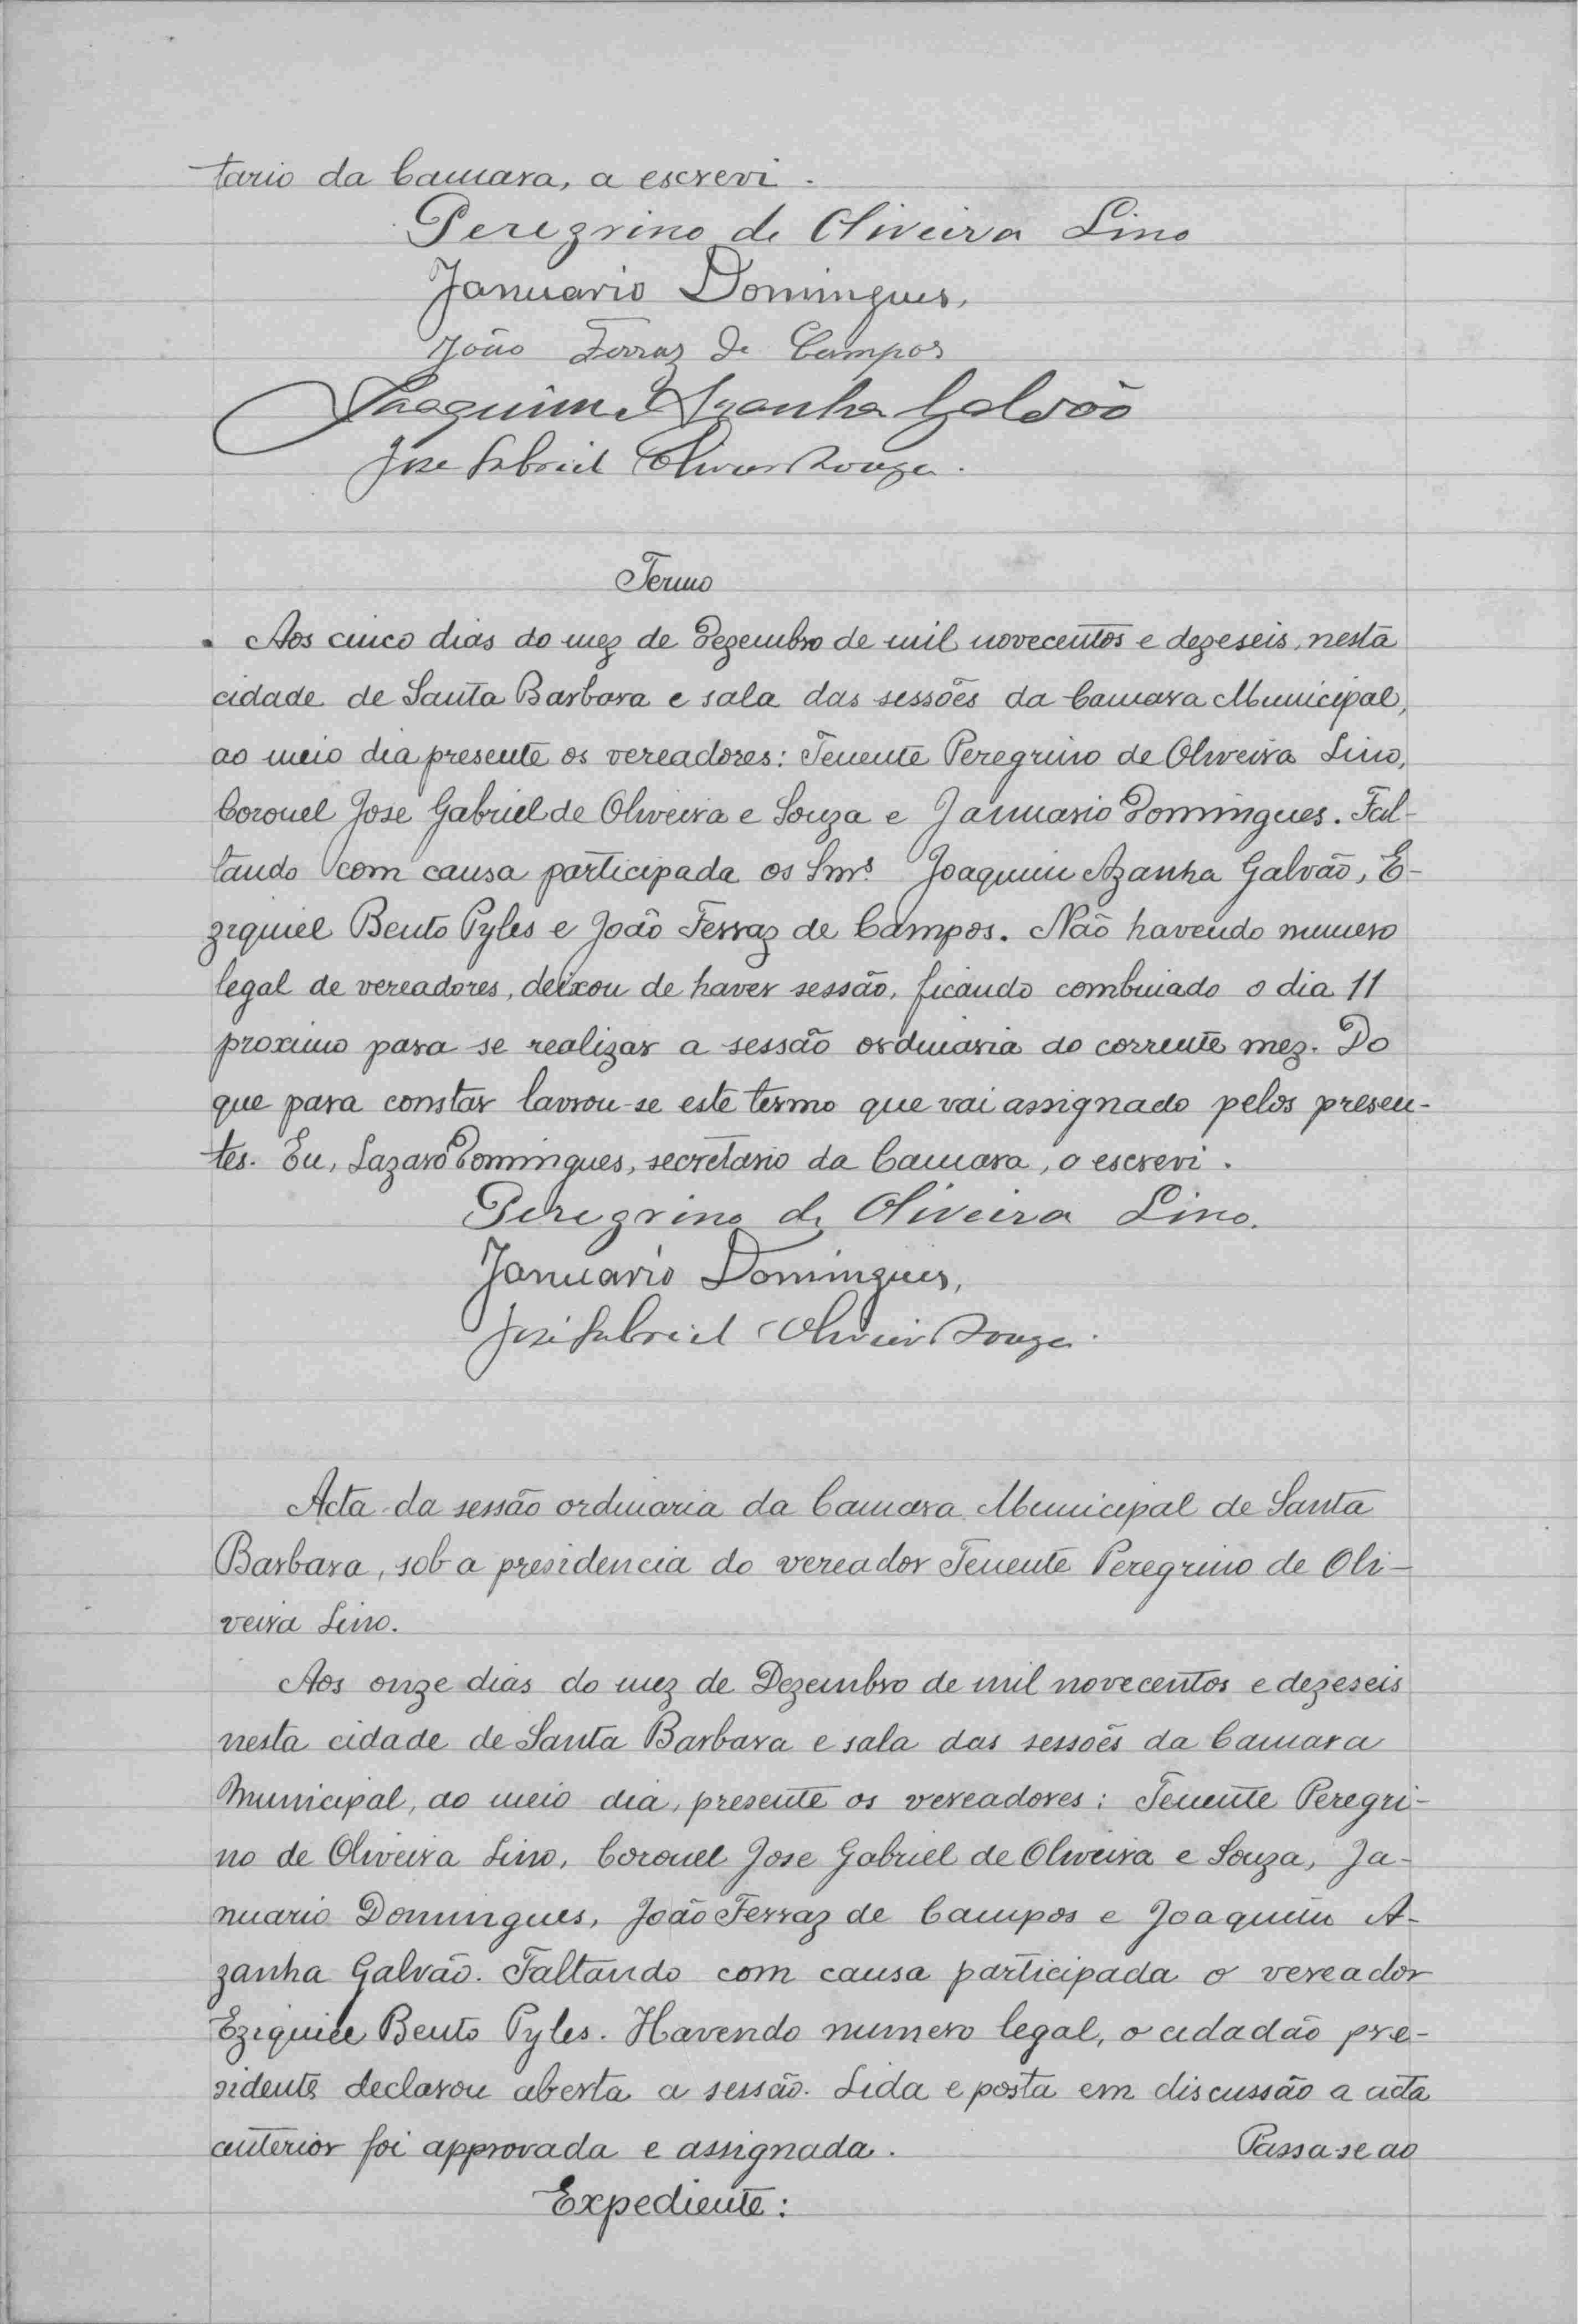 tario da Camara, a escrevi.
Peregrino de Oliveira Lino
Januario Domingues,
João Ferraz de Campos
Joaquim Azanha Galvão
Jose Gabriel Oliveira Souza.
Termo
Aos cinco dias do mez de Dezembro de mil novecentos e dezeseis, nesta
cidade de Santa Barbara e sala das sessões da Camara Municipal,
ao meio dia presente os vereadores: Tenente Peregrino de Oliveira Lino,
Coronel Jose Gabriel de Oliveira e Souza e Januario Domingues. Fal-
tando com causa participada os Snrs. Joaquim Azanha Galvão, E-
zequiel Bento Pyles e João Ferraz de Campos. Não havendo numero
legal de vereadores, deixou de haver sessão, ficando combinado o dia 11
proximo para se realizar a sessão ordinaria do corrente mez. Do
que para constar lavrou-se este termo que vai assignado pelos presen-
tes. Eu, Lazaro Domingues, secretario da Camara, o escrevi.
Peregrino de Oliveira Lino.
Januario Domingues,
José Gabriel Oliveira Souza.
Acta da sessão ordinaria da Camara Municipal de Santa
Barbara, sob a presidencia do vereador Tenente Peregrino de Oli-
veira Lino.
Aos onze dias do mez de Dezembro de mil novecentos e dezeseis
nesta cidade de Santa Barbara e sala das sessões da Camara
Municipal, ao meio dia, presente os vereadores: Tenente Peregri-
no de Oliveira Lino, Coronel Jose Gabriel de Oliveira e Souza, Ja-
nuario Domingues, João Ferraz de Campos e Joaquim A-
zanha Galvão. Faltando com causa participada o vereador
Ezequiel Bento Pyles. Havendo numero legal, o cidadão pre-
sidente declarou aberta a sessão. Lida e posta em discussão a acta
anterior foi approvada e assignada. Passa-se ao
Expediente: